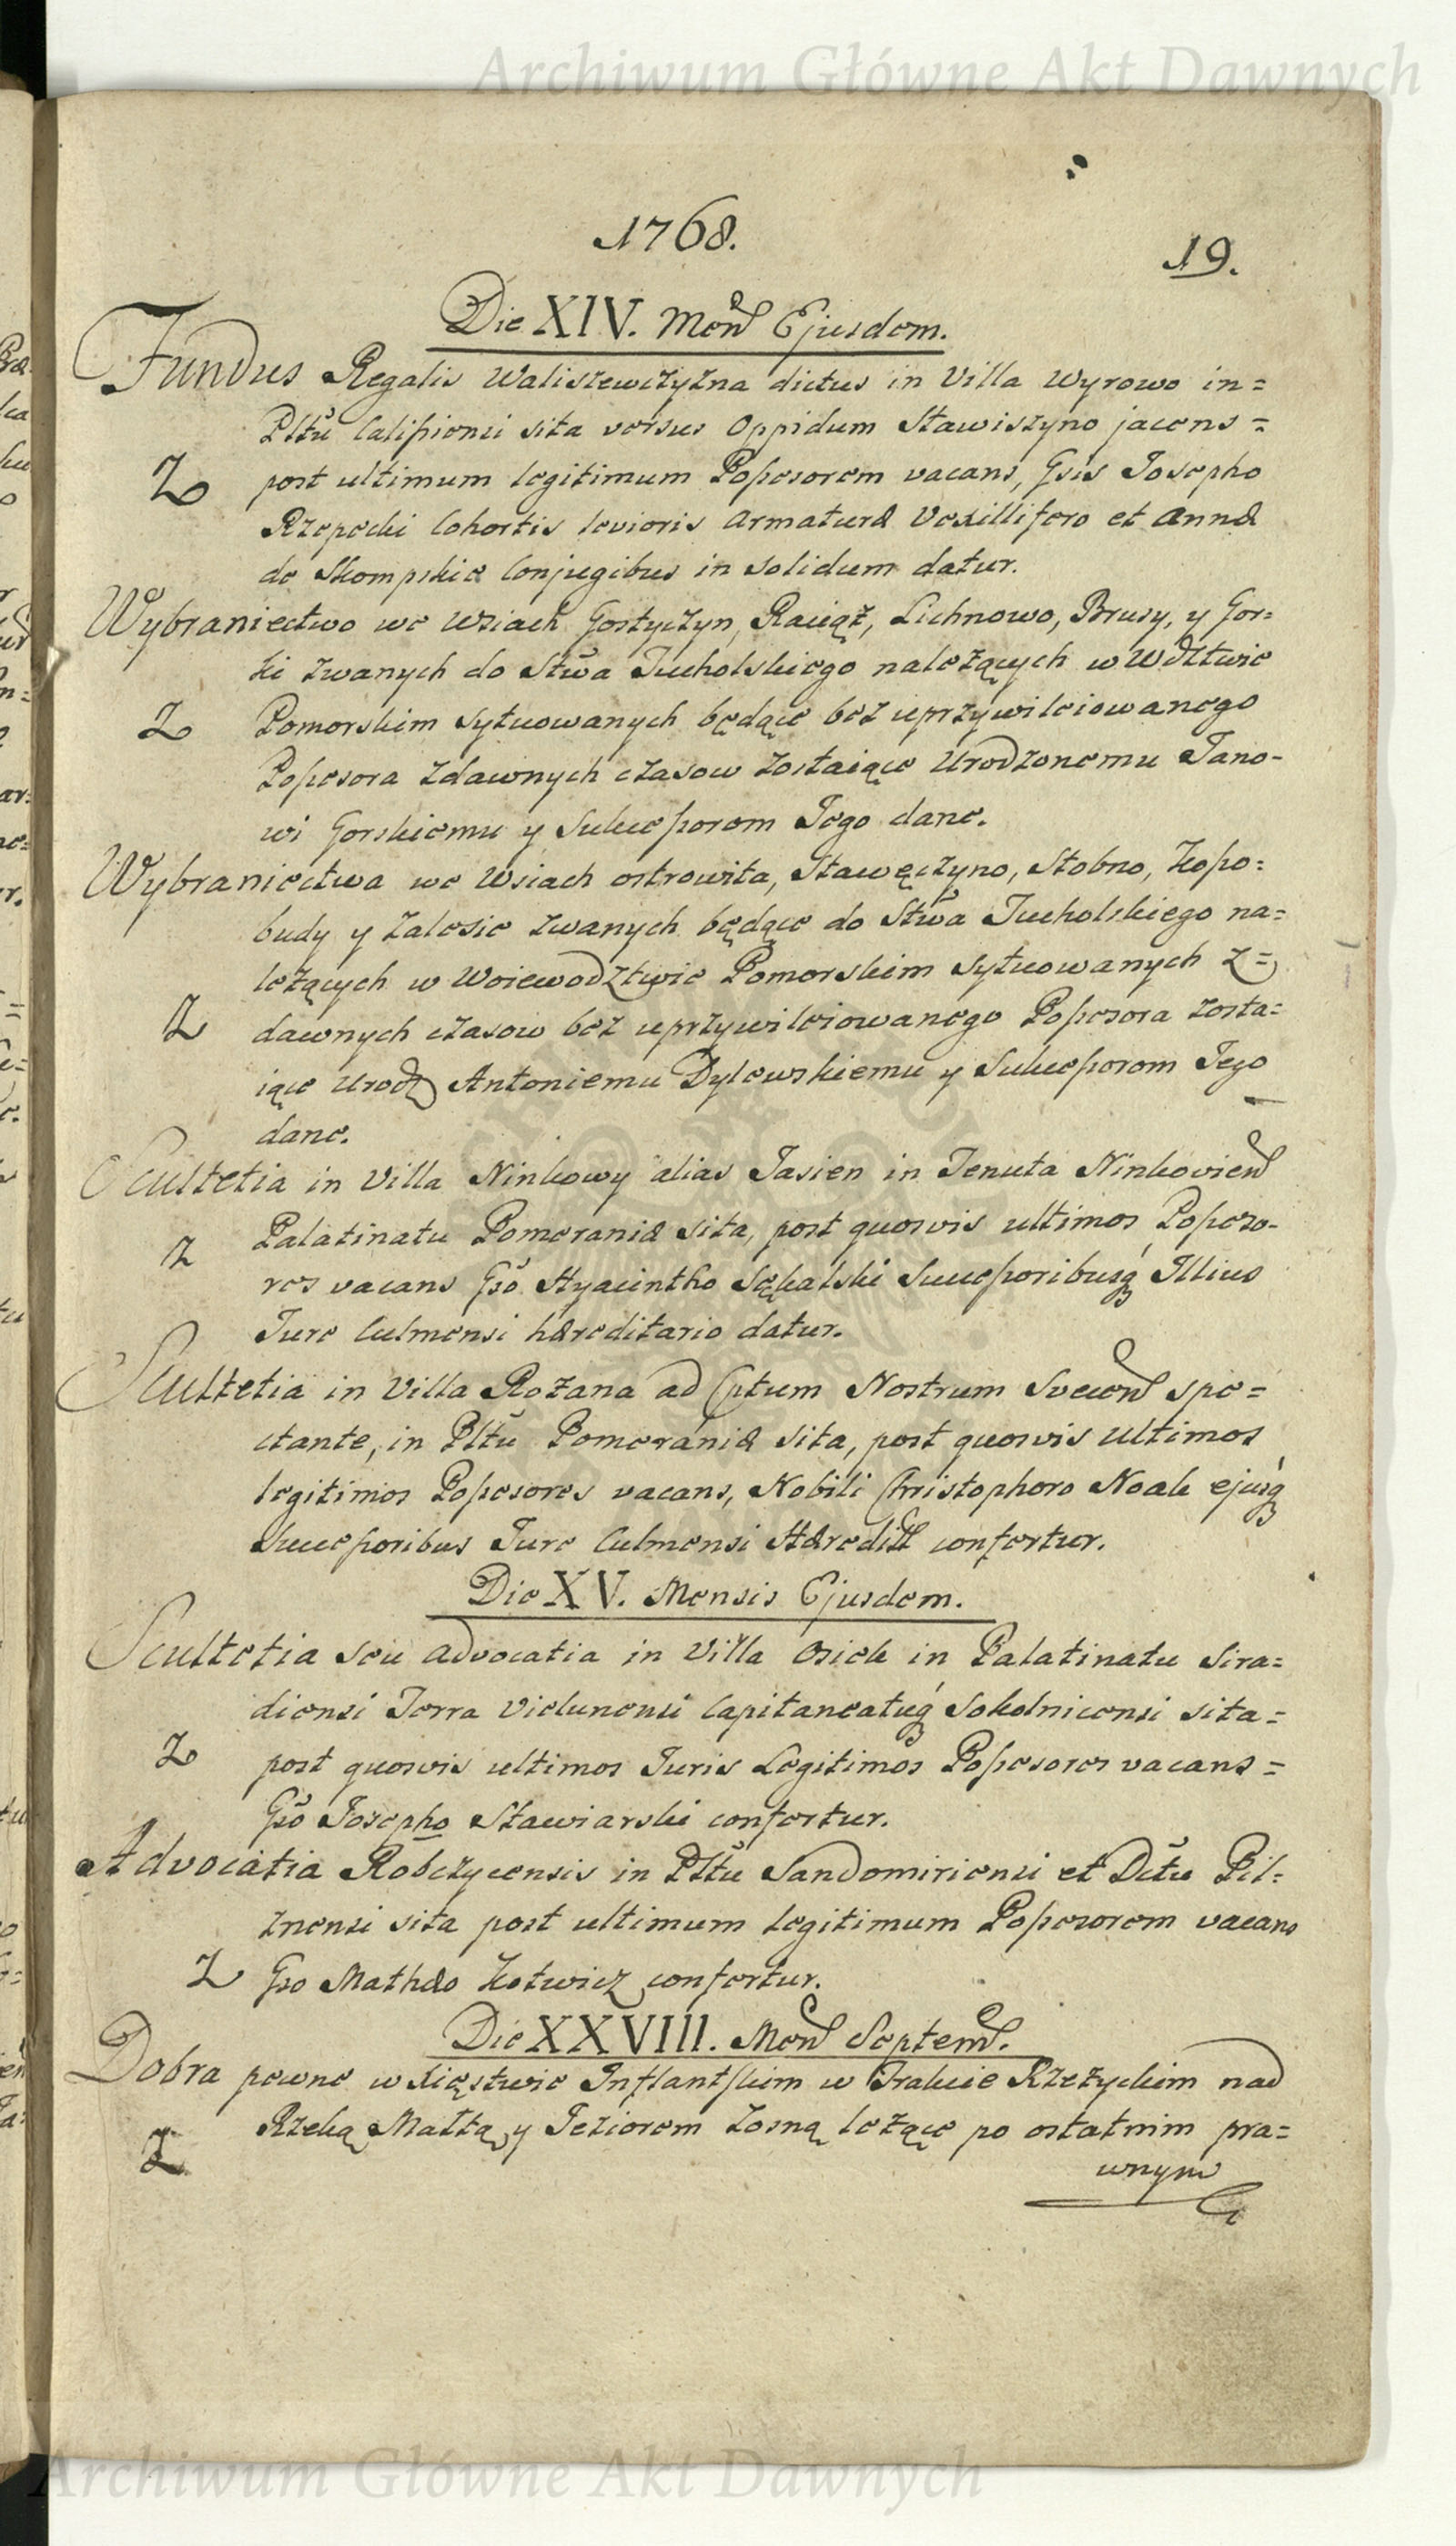 Archiwum Główne Akt Dawnych
1768.
19.
Die XIV. Mens Ejusdem.
Fundus Regalis Waliszewczyzna dictus in Villa Wyrowo in=
Pltũ Calissiensi sita versus Oppidum Stawiszyno jacens =
post ultimum legitimum Possesorem vacans, Gsis Josepho
Rzepecki Cohortis levioris Armaturæ Vexillifero et Annæ
de Skompskie Conjugibus in solidum datur.
Wybraniectwo we Wsiach Gostyczyn, Raciąż, Lichnowo, Brusy, y Gor=
ki zwanych do Stwa Tucholskiego należących w Wdztwie
Z Pomorskim sytuowanych będące bez uprzywileiowanego
Possesora zdawnych czasow zostaiące Urodzonemu Jano-
wi Gorskiemu y Sukcessorom Jego dane.
Wybraniectwa we Wsiach ostrowita, Stawęczyno, Stobno, Kopo=
budy y Zalesie zwanych będące do Stwa Tucholskiego na=
leżących w Woiewodztwie Pomorskim sytuowanych z=
Z dawnych czasow bez uprzywileiowanego Possesora zosta=
iące Urodz Antoniemu Dylewskiemu y Sukcessorom Jego
dane.
Scultetia in Villa Ninkowy alias Jasien in Tenuta Ninkovien
Z Palatinatu Pomeraniæ sita, post quosvis ultimos Posseso-
res vacans Gso Hyacintho Sękalski Successoribusq Illius
Jure Culmensi hæreditario datur.
Scultetia in Villa Rozana ad Cptum Nostrum Svecen spe=
ctante, in Pltũ Pomeraniæ sita, post quosvis ultimos
legitimos Possesores vacans, Nobili Christophoro Noak ejusq
Successoribus Jure Culmensi Hæredit confertur.
Die XV. Mensis Ejusdem.
Scultetia seu Advocatia in Villa Osiek in Palatinatu Sira=
diensi Terra Vielunensi Capitaneatuq Sokolnicensi sita=
Z post quosvis ultimos Juris Legitimos Possesores vacans =
Gso Josepho Stawiarski confertur.
Advocatia Robczycensis in Pltũ Sandomiriensi et Dctu Pil=
znensi sita post ultimum legitimum Possesorem vacans
Z Gso Mathæo Kotwicz confertur.
Die XXVIII. Mens Septem.
Dobra pewne w Xięstwie Inflantskim w Trakcie Rzeżyckim nad
Rzeką Małtą y Jeziorem Zosną leżące po ostatnim pra=
Z wnym
Archiwum Główne Akt Dawnych